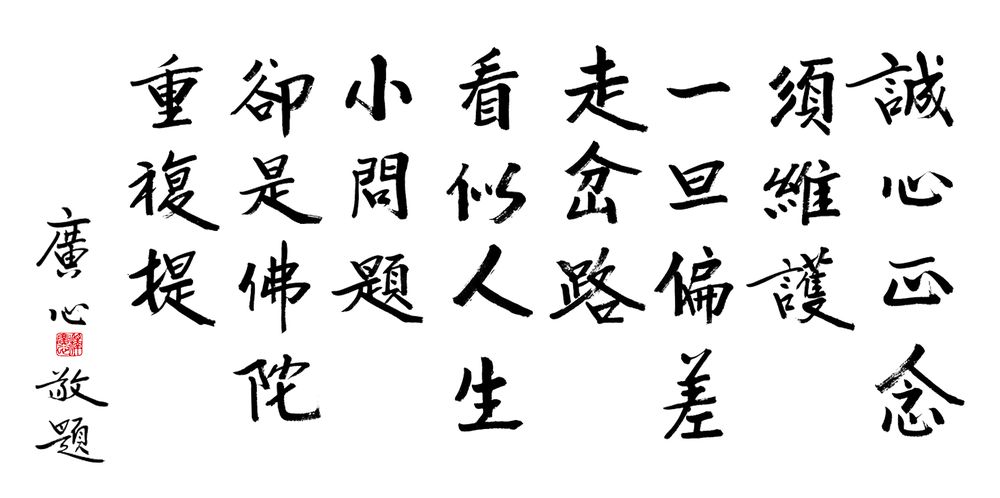 誠心正念
須維護
一旦偏差
走岔路
看似人生
小問題
卻是佛陀
重複提
廣心敬題